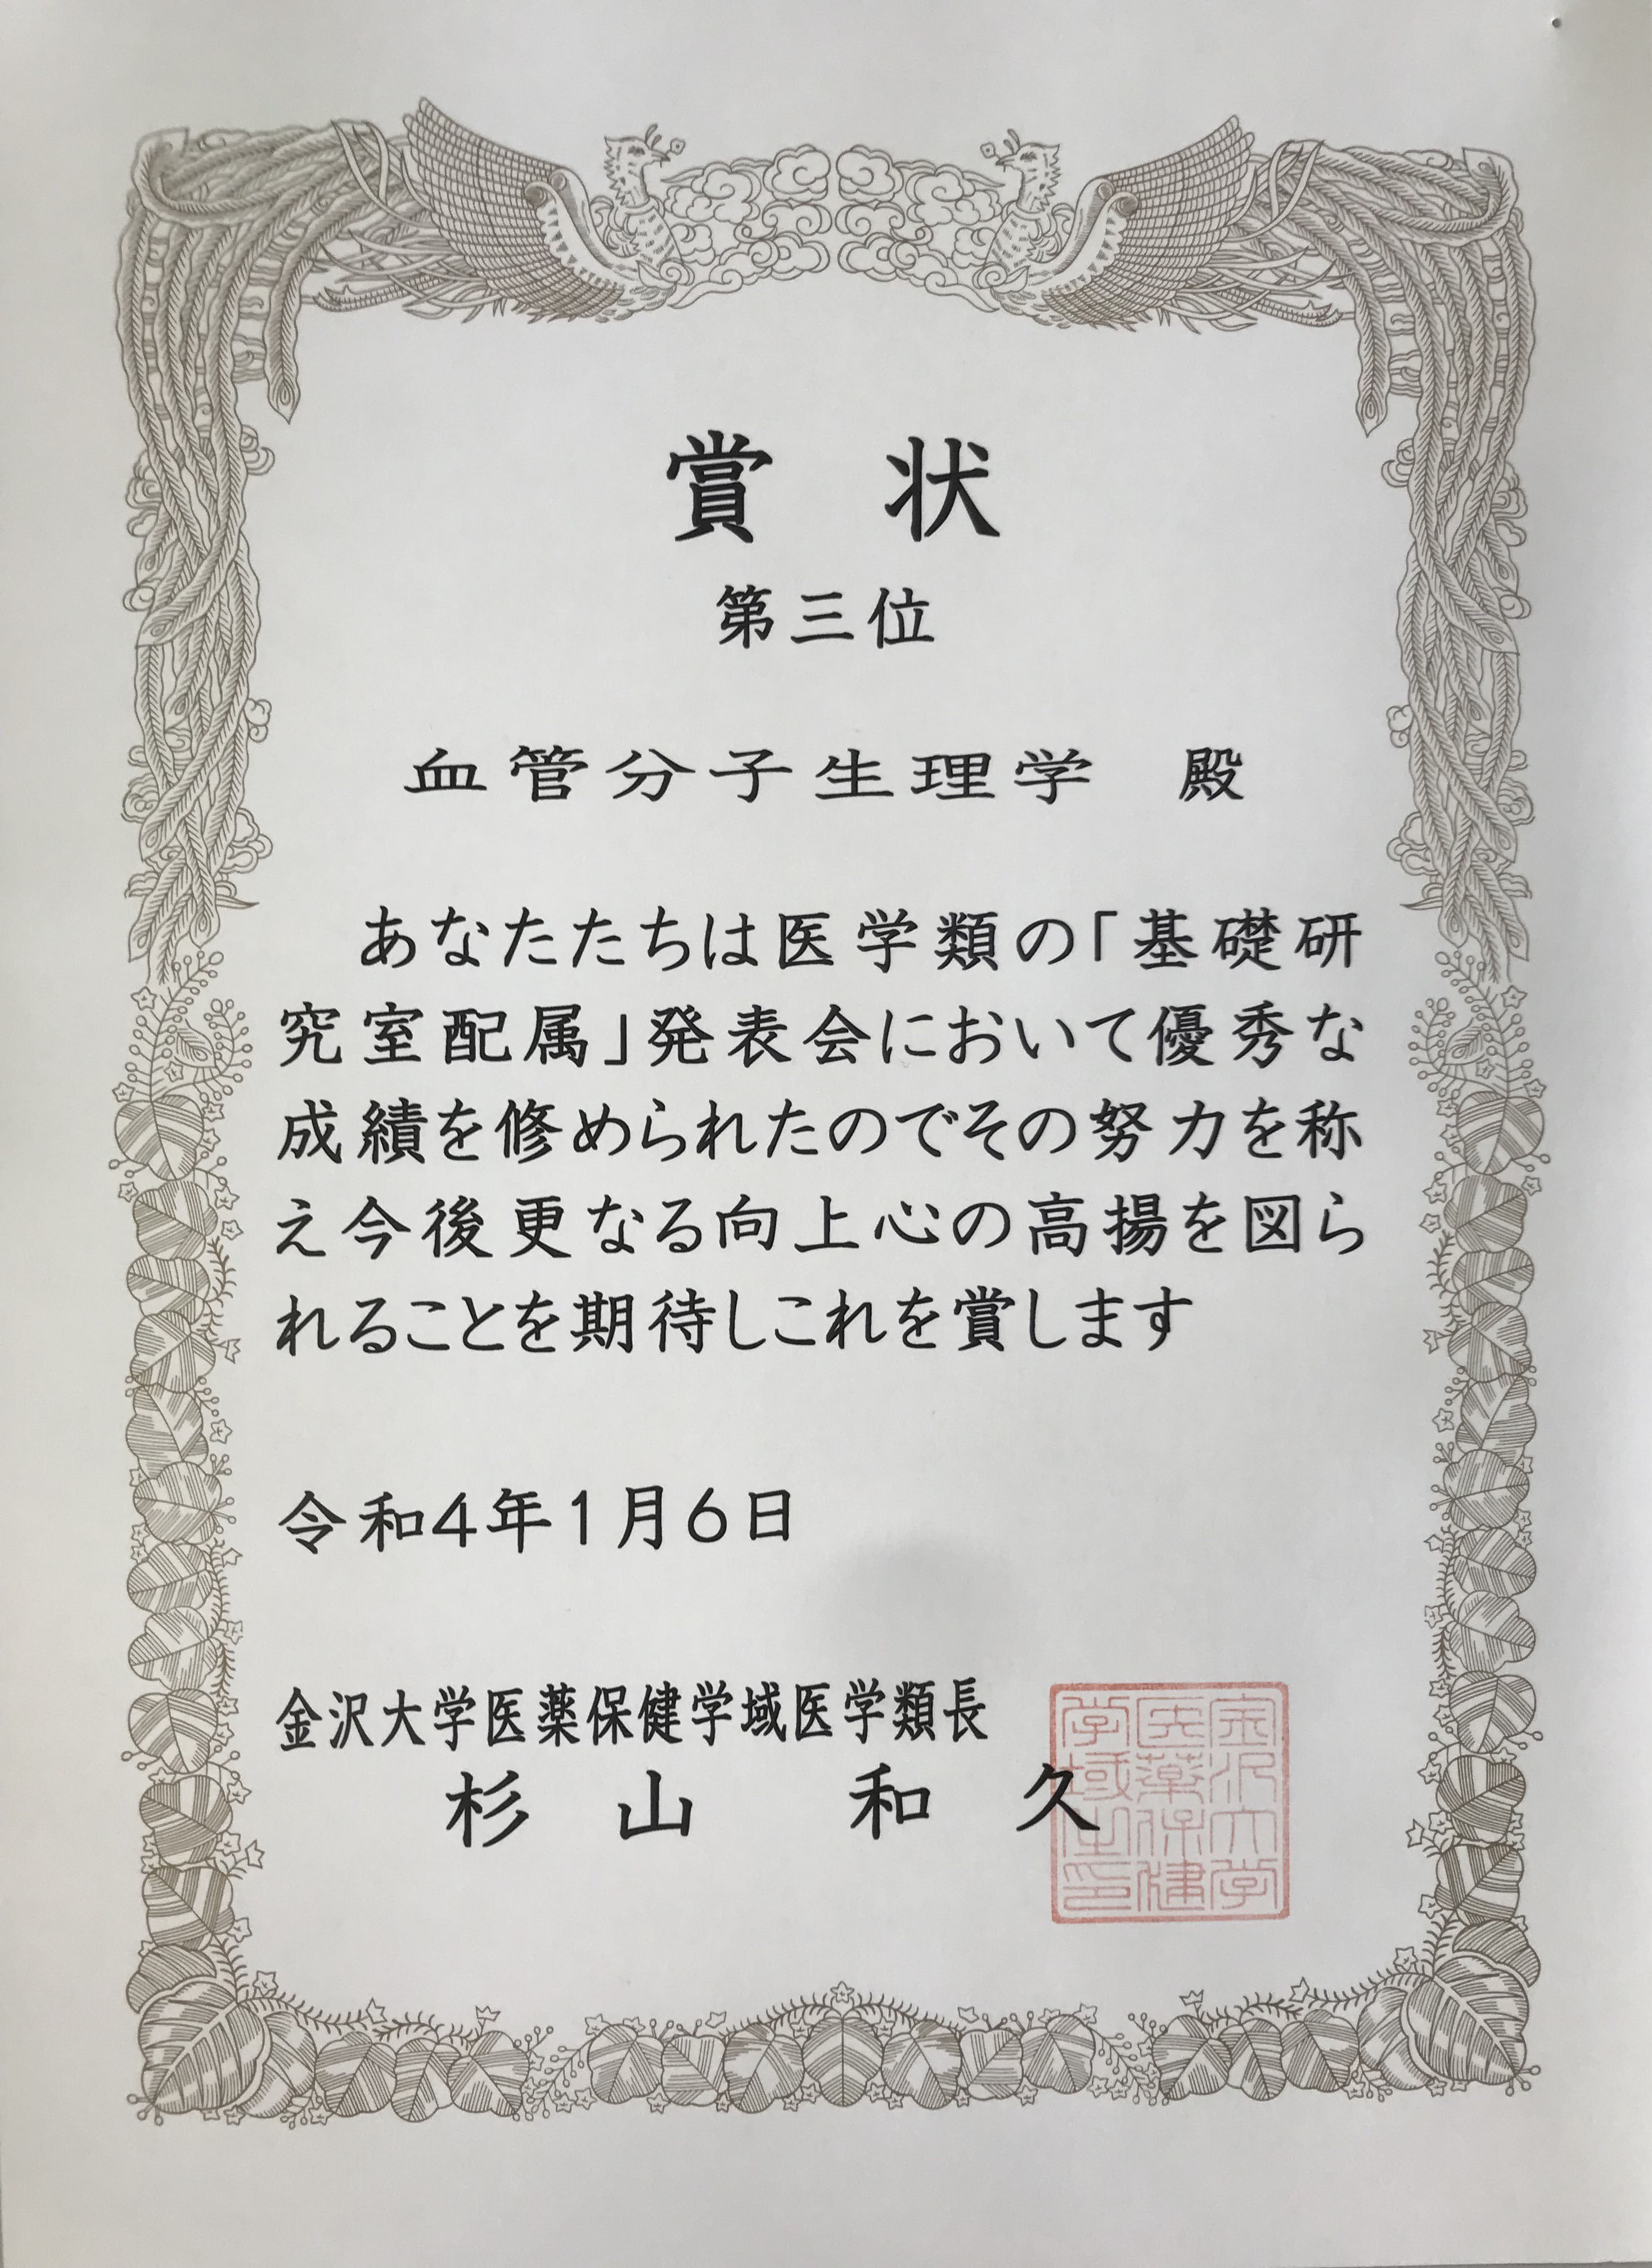 賞状
第三位
血管分子生理学 殿
あなたたちは医学類の「基礎研
究室配属」発表会において優秀な
成績を修められたのでその努力を称
え今後更なる向上心の高揚を図ら
れることを期待しこれを賞します
令和4年1月6日
金沢大学医薬保健学域医学類長
杉山 和久
金沢大学
医薬保健
学域
印